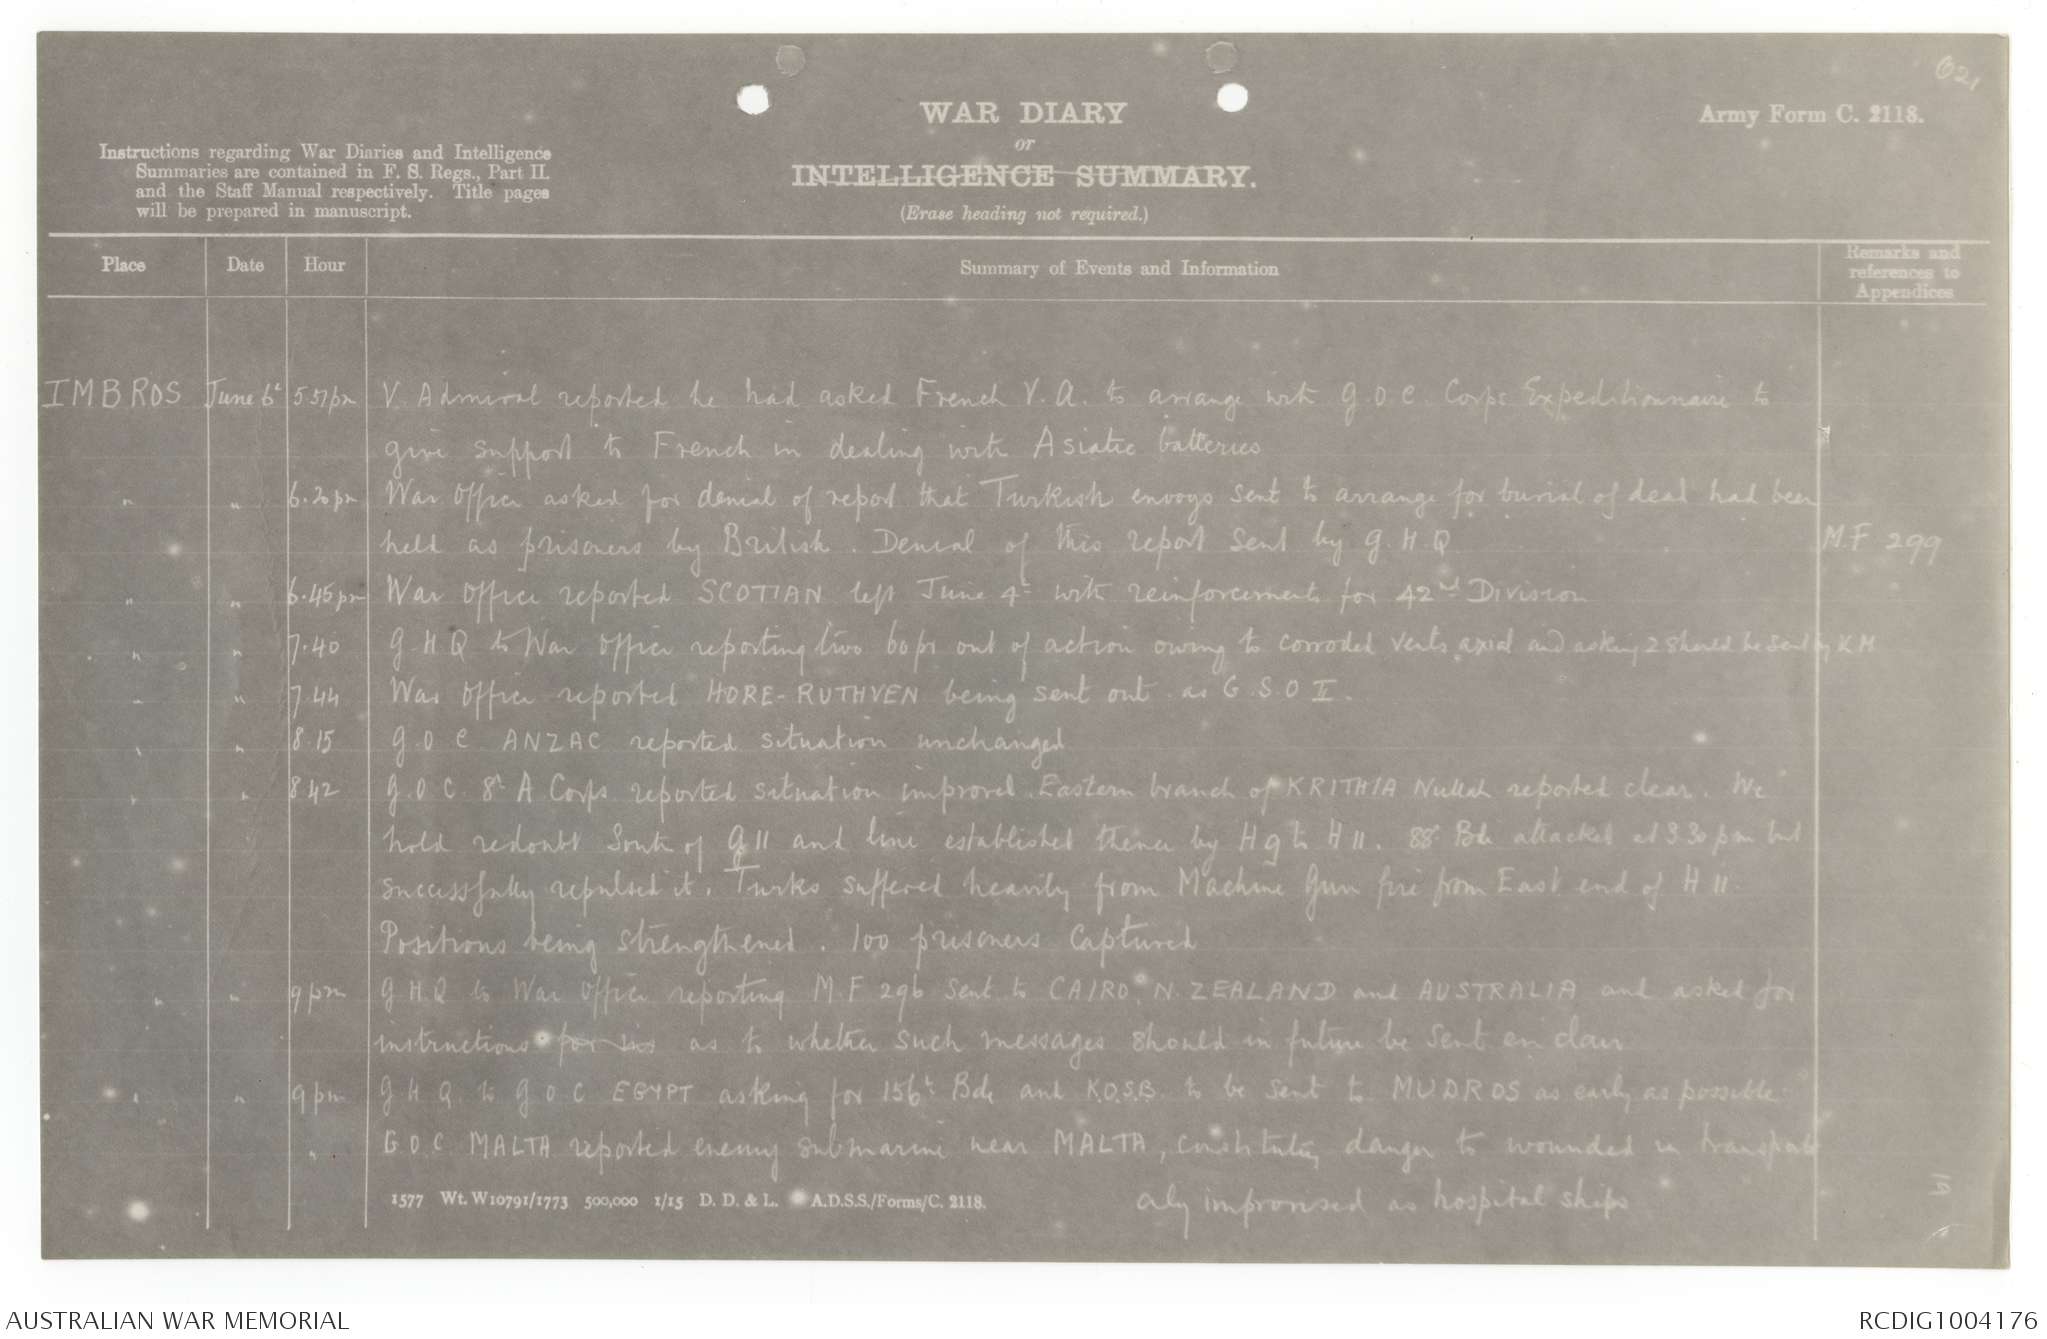 021
WAR DIARY
or
INTELLIGENCE SUMMARY.
(Erase heading not required.)
Army Form C. 2118.
Instructions regarding War Diaries and Intelligence
Summaries are contained in F. S. Regs., Part II.
and the Staff Manual respectively. Title pages
will be prepared in manuscript.
Place Date Hour Summary of Events and Information Remarks and references to Appendices
IMBROS June 6t 5.57pm V. Admiral reported he had asked French V.A. to arrange with G.O.C. Corps Expeditionnaire to
give support to French in dealing with Asiatic batteries
" " 6.20pm War Office asked for denial of report that Turkish envoys sent to arrange for burial of dead had been
held as prisoners by British. Denial of this report sent by G.H.Q. M.F 299
" " 6.45pm War Office reported SCOTIAN left June 4t with reinforcements for 42nd Division
" " 7.40 G.H.Q to War Office reporting two 60 prs out of action owing to corroded vents axial and asking 2 should be sent by K M
" " 7.44 War Office reported HORE-RUTHVEN being sent out as G.S.O II.
" " 8.15 G.O.C. ANZAC reported situation unchanged
" " 8.42 G.O.C. 8t A Corps reported situation improved. Eastern branch of KRITHIA Nullah reported clear. We
hold redoubt South of G 11 and line established thence by H 9 to H 11. 88t Bde attacked at 3.30 pm but
successfully repulsed it. Turks suffered heavily from Machine Gun fire from East end of H 11.
Positions being strengthened. 100 prisoners captured
" " 9pm G.H.Q to War Office reporting M.F 296 sent to CAIRO, N. ZEALAND and AUSTRALIA and asked for
instructions for as to whether such messages should in future be sent en clair
" " 9pm G H Q. to G O C EGYPT asking for 156t Bde and K.O.S.B. to be sent to MUDROS as early as possible
" G.O.C. MALTA reported enemy submarine near MALTA, constituting danger to wounded in transports
only improvised as hospital ships
1577 Wt. W10791/1773 500,000 1/15 D. D. & L. A.D.S.S./Forms/C. 2118.
AUSTRALIAN WAR MEMORIAL
RCDIG1004176